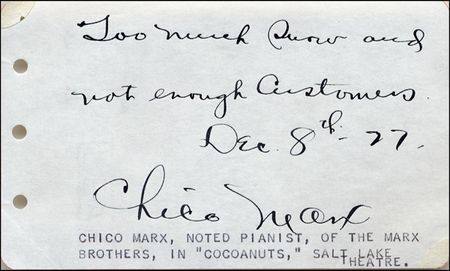 Too much Snow and
not enough Customers.
Dec. 8th - 27.
Chico Marx
CHICO MARX, NOTED PIANIST, OF THE MARX
BROTHERS, IN "COCOANUTS," SALT LAKE
THEATRE.